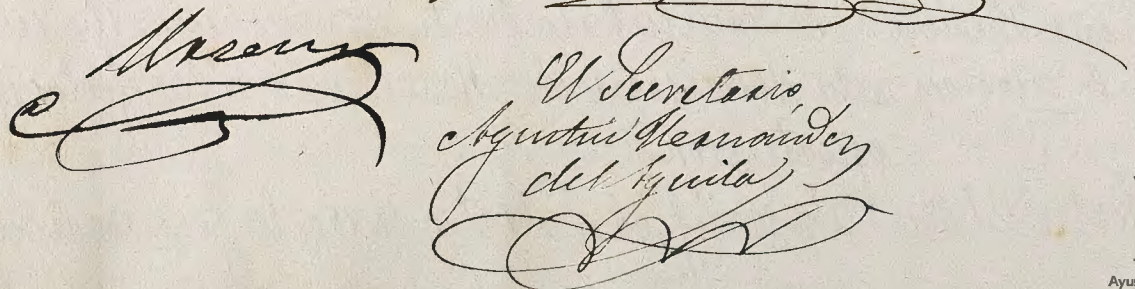 El Secretario,
Agustin Hernández
del Aguila
Ayu